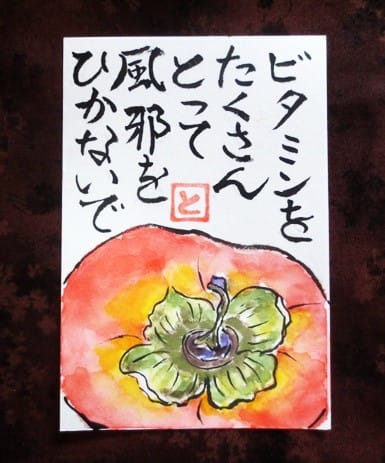 ビタミンを
たくさん
とって
風邪を
ひかないで
と